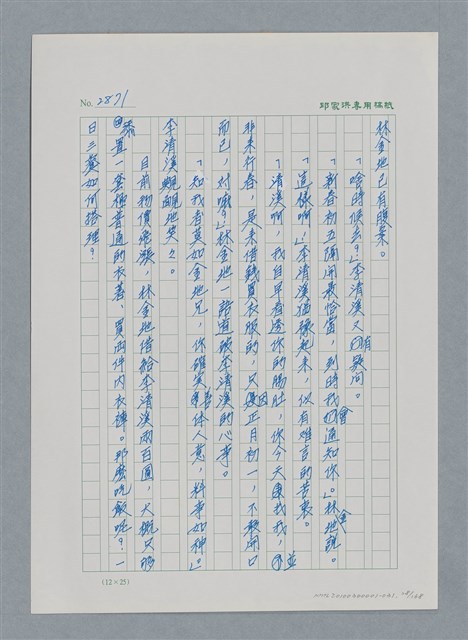 No. 2871
邱家洪專用稿紙
林金地已有腹案。
「啥時候去？」李清溪又有疑問。
「新春初五隔開最恰當，到時我會通知你。」林金地說。
「這樣啊，」李清溪猶豫起來，似有難言的苦衷。
「清溪啊，我自早看透你的腸肚，你今天來找我，並
非來行春，是來借錢買衣服的，只因正月初一，不敢開口
而已，對嘸？」林金地一語道破李清溪的心事。
「知我者莫如金地兄，你確實善体人意，料事如神。」
李清溪靦覥地笑了。
目前物價飛漲，林金地借給李清溪兩百圓，大概只夠
添置一套極普通的衣著、買兩件內衣褲。那麼吃飯呢？一
日三餐如何搭理？
(12×25)